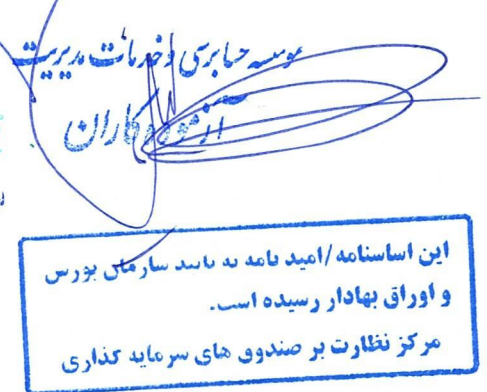 موسسه حسابرسی و خدمات مدیریت
آزمودکاران
این اساسنامه/امید نامه به تایید سازمان بورس
و اوراق بهادار رسیده است.
مرکز نظارت بر صندوق های سرمایه گذاری